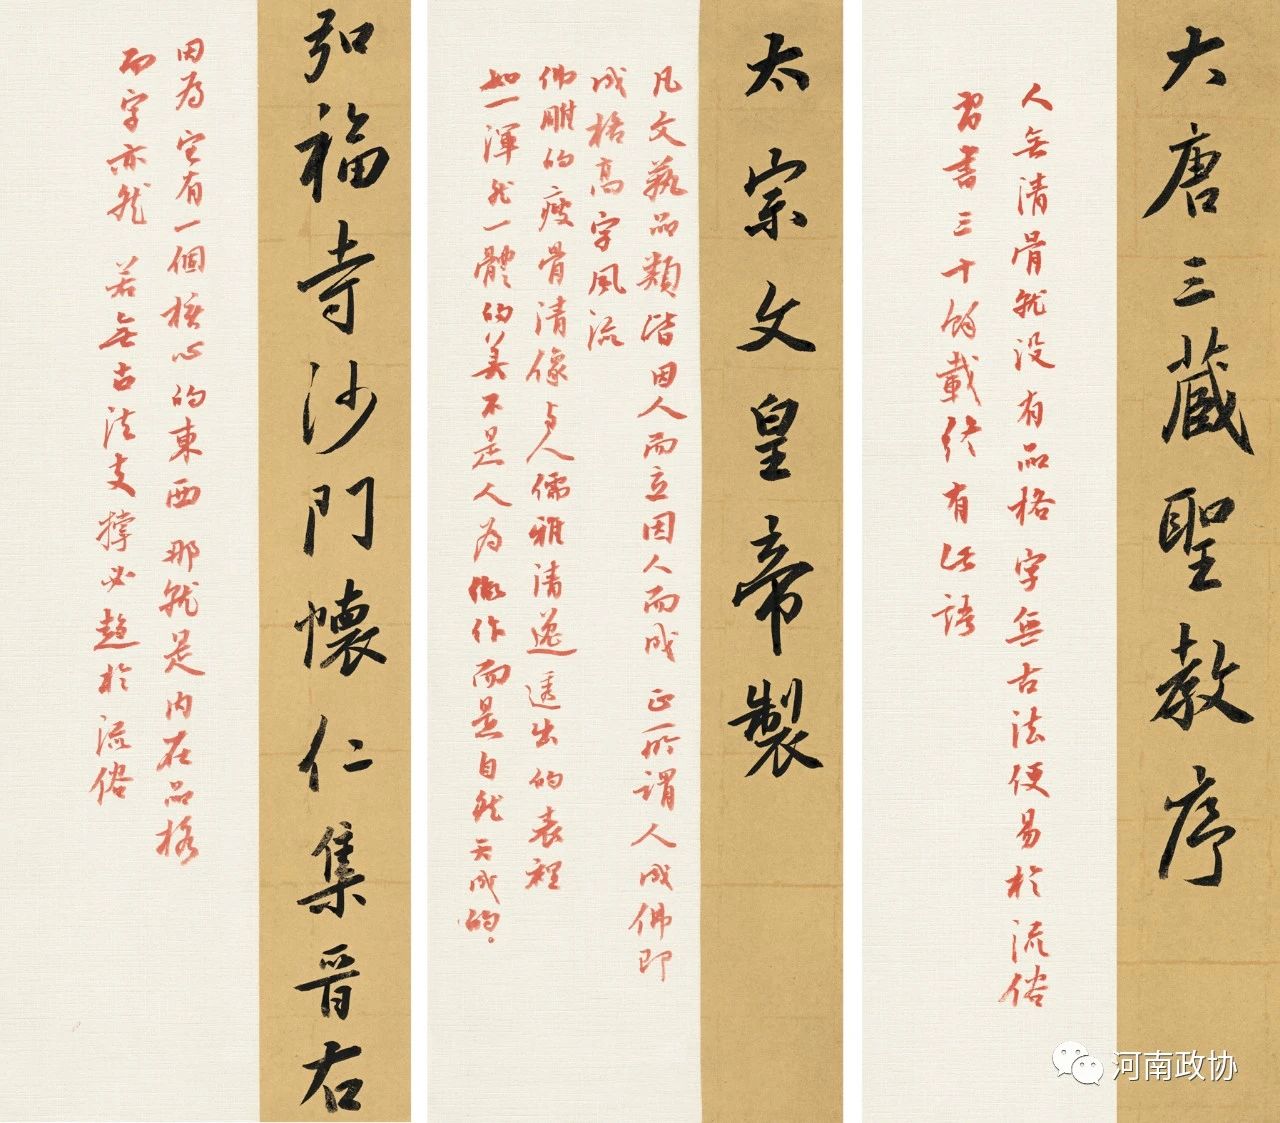 大唐三藏聖教序
人無清骨就没有品格 字無古法便易於流俗
習書三十餘載終有此語
太宗文皇帝製
凡文藝品類皆因人而立因人而成 正所謂人成佛即
成格高字風流
佛雕的瘦骨清像与人儒雅清逸透出的表裡
如一渾然一體的美不是人为做作而是自然天成的。
弘福寺沙門懷仁集晉右
因为它有一個核心的東西 那就是内在品格
而字亦然 若無古法支撑必趋於流俗
河南政协